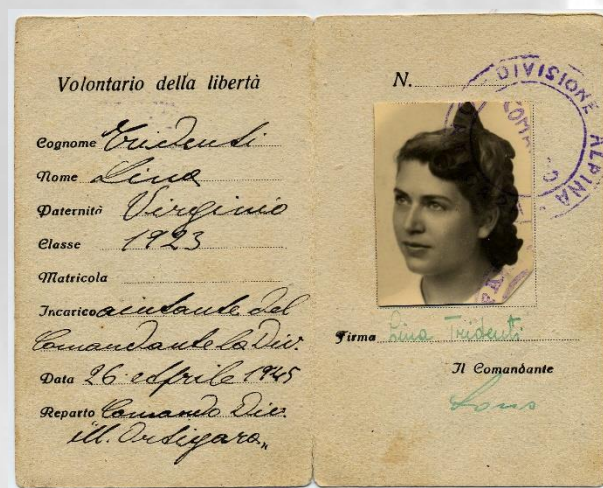 Volontario della libertà
Cognome Tridenti
Nome Lina
Paternità Virginio
Classe 1923
Matricola
Incarico aiutante del
Comandante la Div.
Data 26 Aprile 1945
Reparto Comando Div.
"M. Ortigara"
N.
DIVISIONE ALPINA
Firma Lina Tridenti
Il Comandante